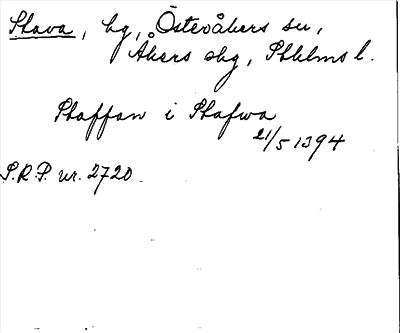 Stava, hg, Österåkers sn,
Åkers skg, Sthlms l.
Staffan i Stafwa
21/5 1394
S.R.P. nr. 2720